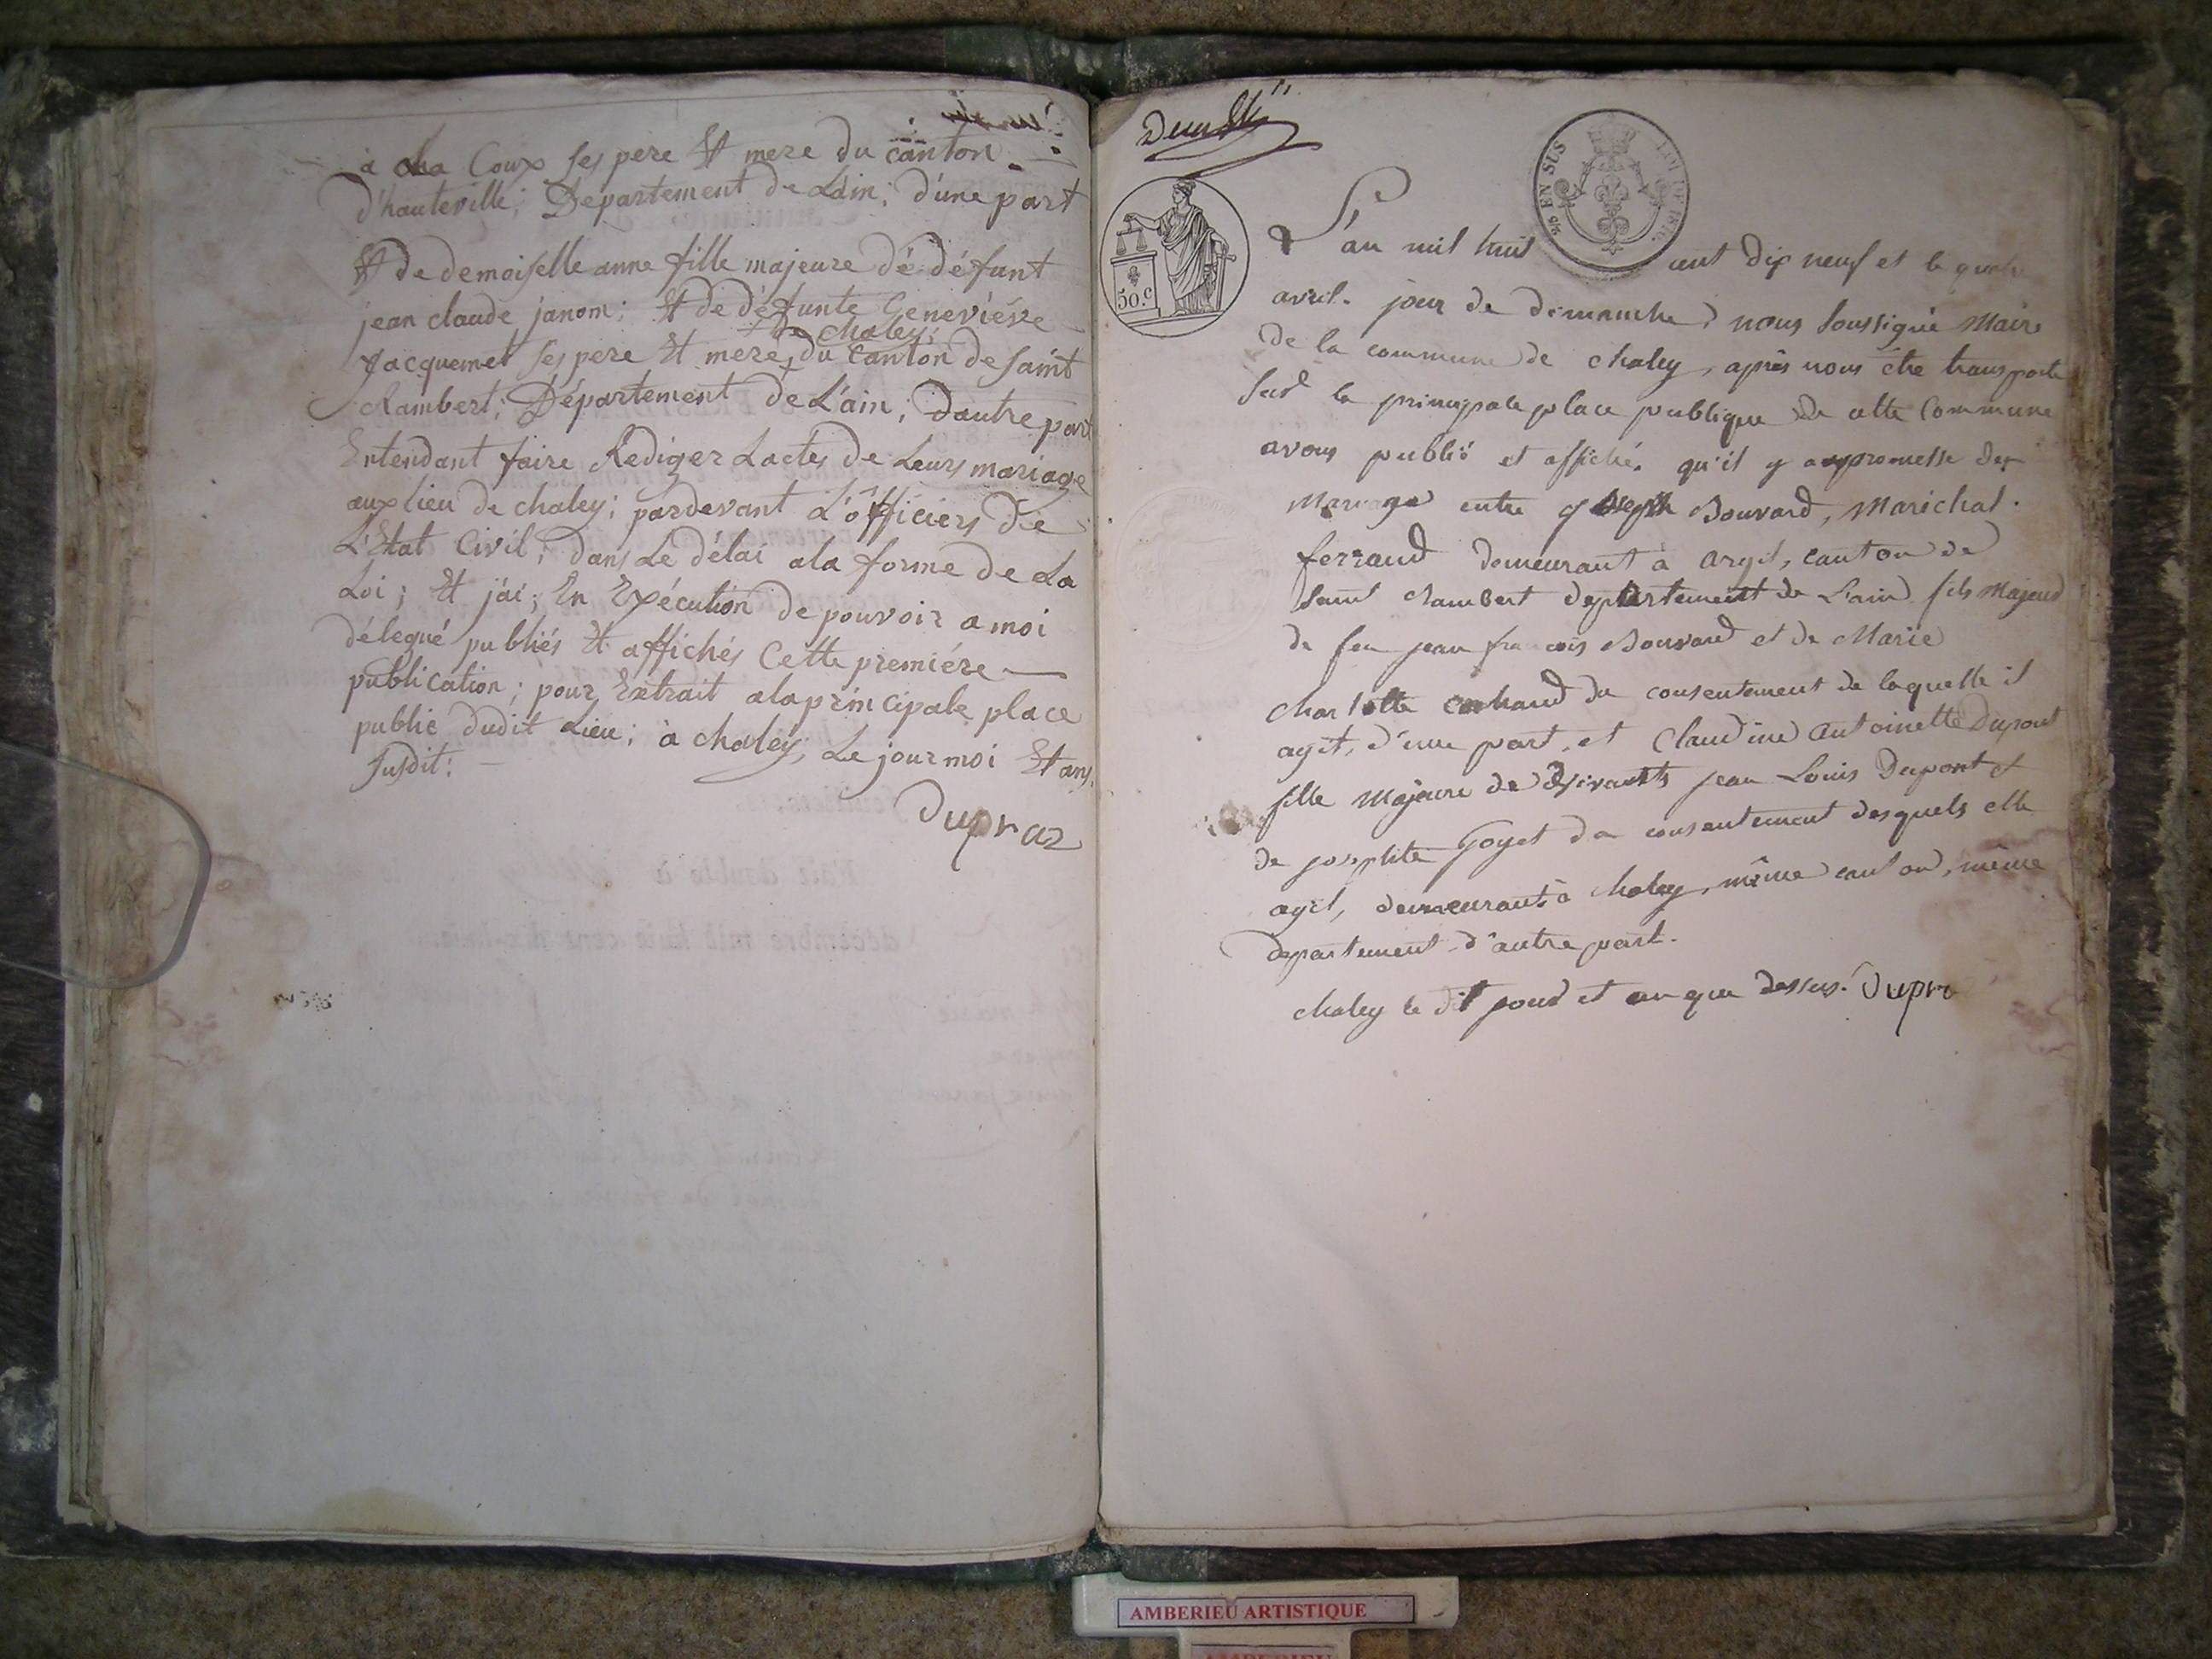 à La Coux ses pere Et mere du canton
d'hauteville; Département de Lain; d'une part
Et de demoiselle anne fille majeure dé défunt
jean claude janom; Et de défunte Geneviéve
+ de chaley;
Jacquemet ses pere Et mere, + du canton de saint
Rambert; Département de L'ain; Dautre part
Entendant faire Rediger Lactes de Leurs mariage
aux lieu de chaley; pardevant L'officiers de
L'Etat Civil; dans Le délai a la forme de La
Loi; Et j'ai; En Exécution de pouvoir a moi
délegué publiés Et affichés Cette premiére
publication; pour Extrait a la principale place
public dudit Lieu; à chaley, Le jour moi Et ans
susdit:
Dupraz
Deux
2/5 EN SUS
LOI DE 1816
50.c
L'an mil huit cent dix neuf et le
avril. jour de dimanche, nous soussigné Maire
de la commune de chaley, après nous être transporté
sur la principale place publique de cette Commune
avons publié et affiché. qu'il y a promesse de
Mariage entre joseph Bouvard, Maréchal.
ferrand demeurant à argit, canton de
saint Rambert departement de L'ain fils Majeur
de feu jean francois Bouvard et de Marie
Charlotte du consentement de laquelle il
agit, d'une part, et Claudine antoinette Dupont
fille Majeure de vivants jean Louis Dupont et
de josephte Goyet du consentement desquels elle
agit, demeurant à Chaley, même canton, même
departement d'autre part.
chaley le dit jour et an que dessus. Dupra
AMBERIEU ARTISTIQUE
AMBERIEU